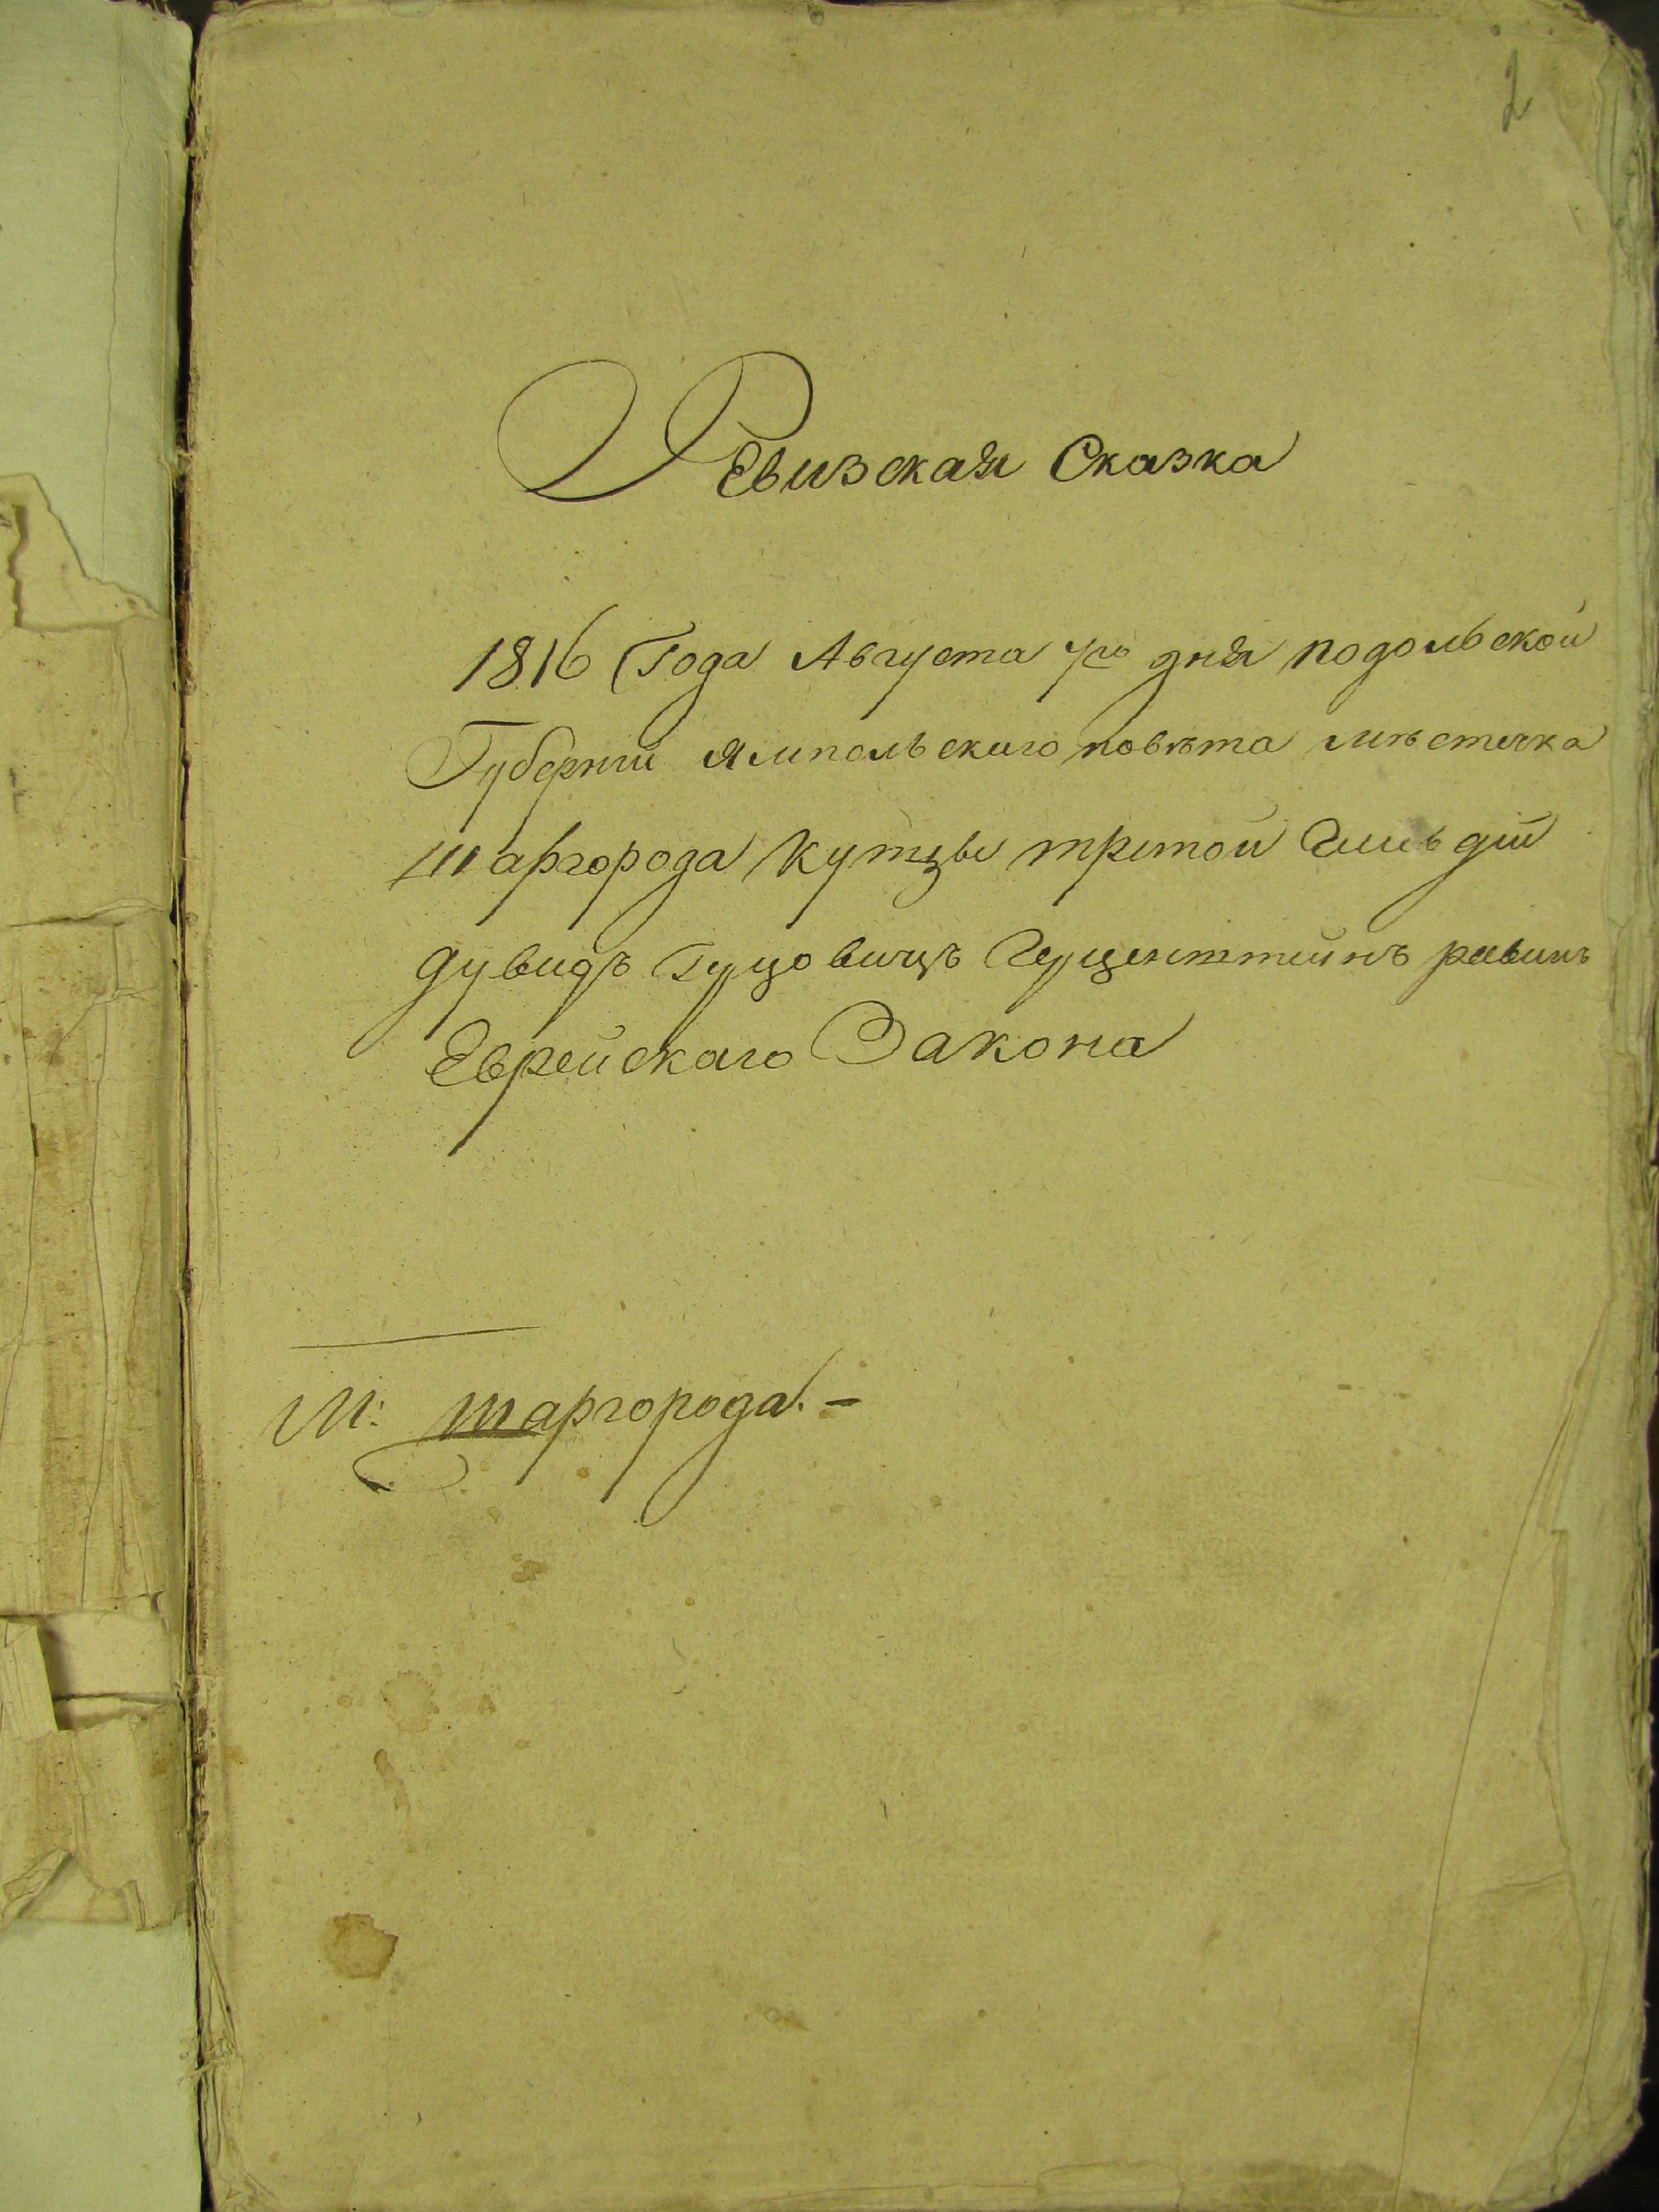 2
Ревизская Сказка
1816 Года Августа 7го дня подольской
Губерніи Ямпольскаго повѣта мѣстечка
Шаргорода Купцы третой Гильдіи
дувидъ
Еврейскаго Закона
М: шаргорода. –